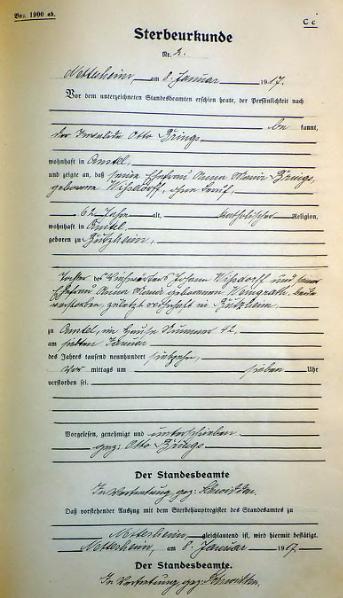 Bez. 1900 ab.
C c
Sterbeurkunde
Nr. 2.
Netterheim, am 8. Januar 1917.
Vor dem unterzeichneten Standesbeamten erschien heute, der Persönlichkeit nach
be kannt,
der Invalide Otto Brings
wohnhaft in
und zeigte an, daß seine Ehefrau Anna Maria Brings,
geborene
62 Jahr alt, katholischer Religion,
wohnhaft in
geboren zu
Tochter des Johann und seiner
Ehefrau Anna Maria geborenen
verstorben, zuletzt wohnhaft in
zu im Hause Nummer 12,
am siebten Januar
des Jahres tausend neunhundert siebzehn,
Vor mittags um sieben Uhr
verstorben sei.
Vorgelesen, genehmigt und unterschrieben
gez. Otto Brings
Der Standesbeamte
In Vertretung gez.
Daß vorstehender Auszug mit dem Sterbehauptregister des Standesamtes zu
Netterheim, gleichlautend ist, wird hiermit bestätigt.
Netterheim, am 8. Januar 1917.
Der Standesbeamte.
In Vertretung gez.